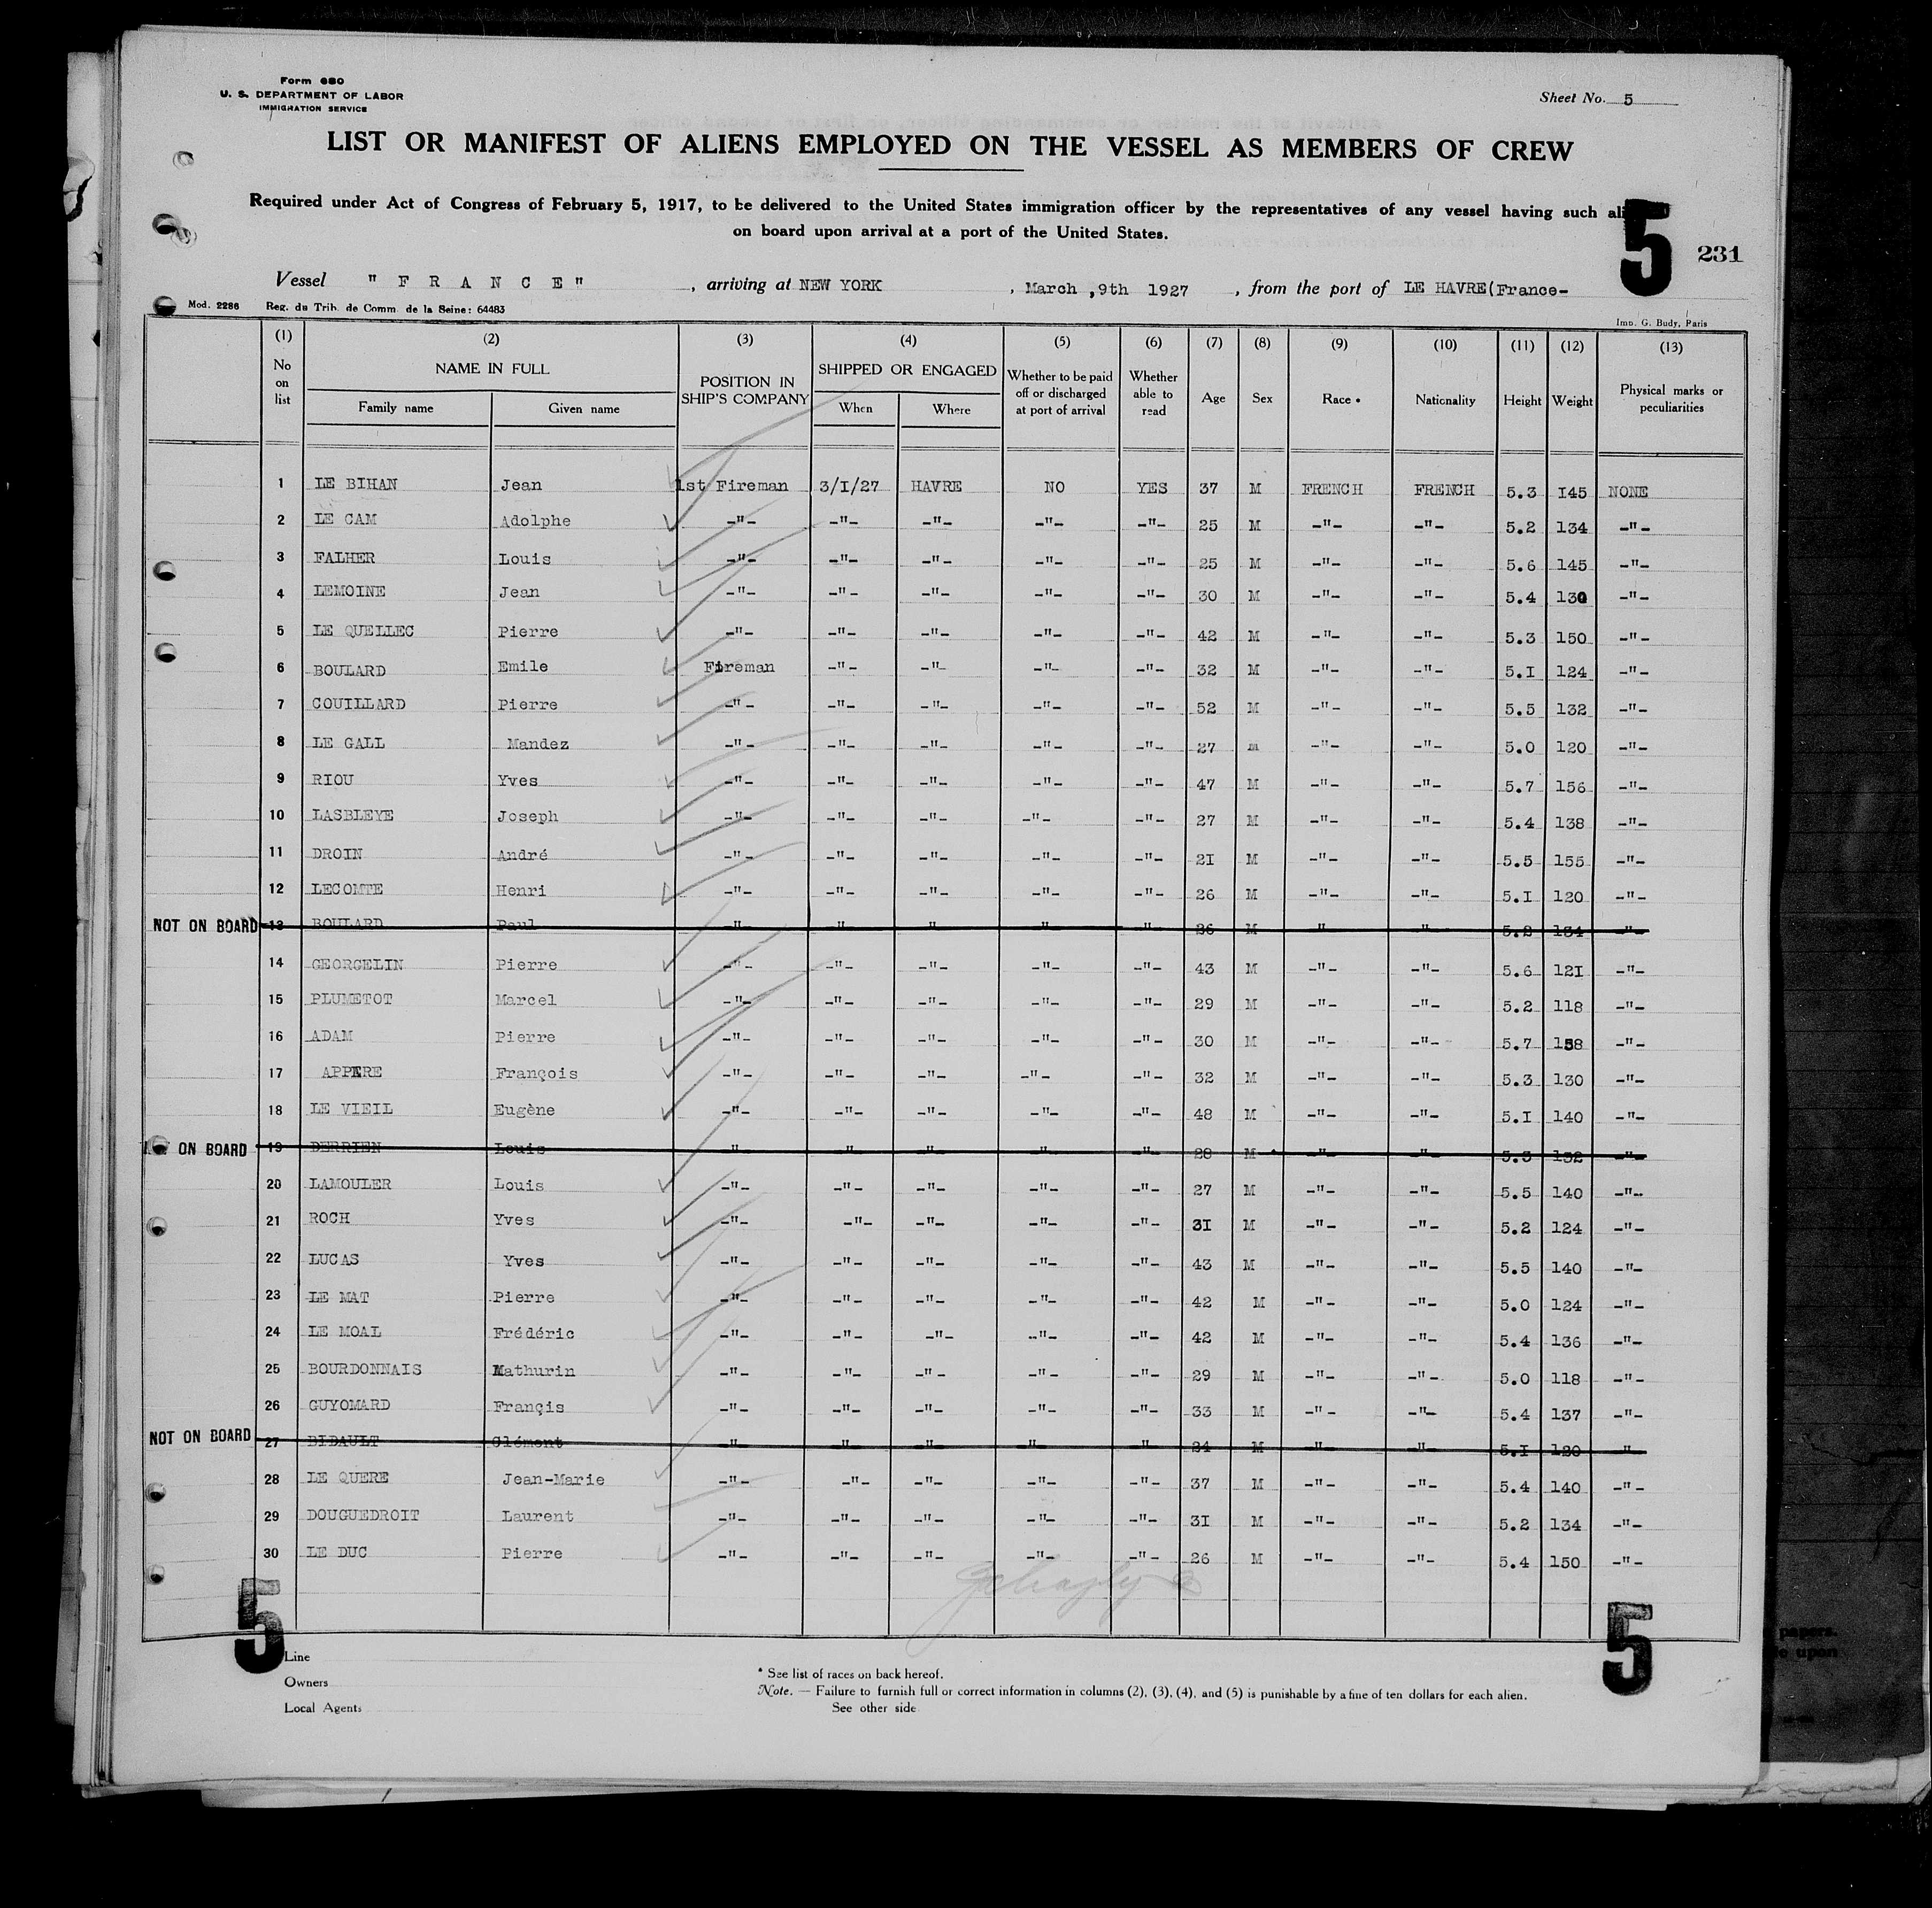 Form 680
U. S. DEPARTMENT OF LABOR
IMMIGRATION SERVICE
Sheet No. 5
LIST OR MANIFEST OF ALIENS EMPLOYED ON THE VESSEL AS MEMBERS OF CREW
Required under Act of Congress of February 5, 1917, to be delivered to the United States immigration officer by the representatives of any vessel having such
on board upon arrival at a port of the United States.
5 231
Vessel "FRANCE", arriving at NEW YORK, March ,9th 1927, from the port of LE HAVRE(France-
Mod. 2286 Reg. du Trib. de Comm. de la Seine: 64483
Imp. G. Budy, Paris
(1) (2) (3) (4) (5) (6) (7) (8) (9) (10) (11) (12) (13)
No on list NAME IN FULL Family name Given name POSITION IN SHIP'S COMPANY SHIPPED OR ENGAGED When Where Whether to be paid off or discharged at port of arrival Whether able to read Age Sex Race * Nationality Height Weight Physical marks or peculiarities
1 LE BIHAN Jean 1st Fireman 3/I/27 HAVRE NO YES 37 M FRENCH FRENCH 5.3 I45 NONE
2 LE CAM Adolphe -"- -"- -"- -"- -"- 25 M -"- -"- 5.2 134 -"-
3 FALHER Louis -"- -"- -"- -"- -"- 25 M -"- -"- 5.6 145 -"-
4 LEMOINE Jean -"- -"- -"- -"- -"- 30 M -"- -"- 5.4 130 -"-
5 LE QUELLEC Pierre -"- -"- -"- -"- -"- 42 M -"- -"- 5.3 150 -"-
6 BOULARD Emile Fireman -"- -"- -"- -"- 32 M -"- -"- 5.I 124 -"-
7 COUILLARD Pierre -"- -"- -"- -"- -"- 52 M -"- -"- 5.5 132 -"-
8 LE GALL Mandez -"- -"- -"- -"- -"- 27 M -"- -"- 5.0 120 -"-
9 RIOU Yves -"- -"- -"- -"- -"- 47 M -"- -"- 5.7 156 -"-
10 LASBLEYE Joseph -"- -"- -"- -"- -"- 27 M -"- -"- 5.4 138 -"-
11 DROIN André -"- -"- -"- -"- -"- 2I M -"- -"- 5.5 155 -"-
12 LECOMTE Henri -"- -"- -"- -"- -"- 26 M -"- -"- 5.I 120 -"-
NOT ON BOARD 13 BOULARD Paul -"- -"- -"- -"- -"- 26 M -"- -"- 5.2 134 -"-
14 GEORGELIN Pierre -"- -"- -"- -"- -"- 43 M -"- -"- 5.6 12I -"-
15 PLUMETOT Marcel -"- -"- -"- -"- -"- 29 M -"- -"- 5.2 118 -"-
16 ADAM Pierre -"- -"- -"- -"- -"- 30 M -"- -"- 5.7 158 -"-
17 APPERE François -"- -"- -"- -"- -"- 32 M -"- -"- 5.3 130 -"-
18 LE VIEIL Eugène -"- -"- -"- -"- -"- 48 M -"- -"- 5.I 140 -"-
ON BOARD 19 DERRIEN Louis -"- -"- -"- -"- -"- 28 M -"- -"- 5.3 132 -"-
20 LAMOULER Louis -"- -"- -"- -"- -"- 27 M -"- -"- 5.5 140 -"-
21 ROCH Yves -"- -"- -"- -"- -"- 3I M -"- -"- 5.2 124 -"-
22 LUCAS Yves -"- -"- -"- -"- -"- 43 M -"- -"- 5.5 140 -"-
23 LE MAT Pierre -"- -"- -"- -"- -"- 42 M -"- -"- 5.0 124 -"-
24 LE MOAL Frédéric -"- -"- -"- -"- -"- 42 M -"- -"- 5.4 136 -"-
25 BOURDONNAIS Mathurin -"- -"- -"- -"- -"- 29 M -"- -"- 5.0 118 -"-
26 GUYOMARD Françis -"- -"- -"- -"- -"- 33 M -"- -"- 5.4 137 -"-
NOT ON BOARD 27 BIDAULT Clément -"- -"- -"- -"- -"- 24 M -"- -"- 5.I 120 -"-
28 LE QUERE Jean-Marie -"- -"- -"- -"- -"- 37 M -"- -"- 5.4 140 -"-
29 DOUGUEDROIT Laurent -"- -"- -"- -"- -"- 3I M -"- -"- 5.2 134 -"-
30 LE DUC Pierre -"- -"- -"- -"- -"- 26 M -"- -"- 5.4 150 -"-
5 5
Line
Owners
Local Agents
* See list of races on back hereof.
Note. — Failure to furnish full or correct information in columns (2), (3), (4), and (5) is punishable by a fine of ten dollars for each alien.
See other side
papers.
upon